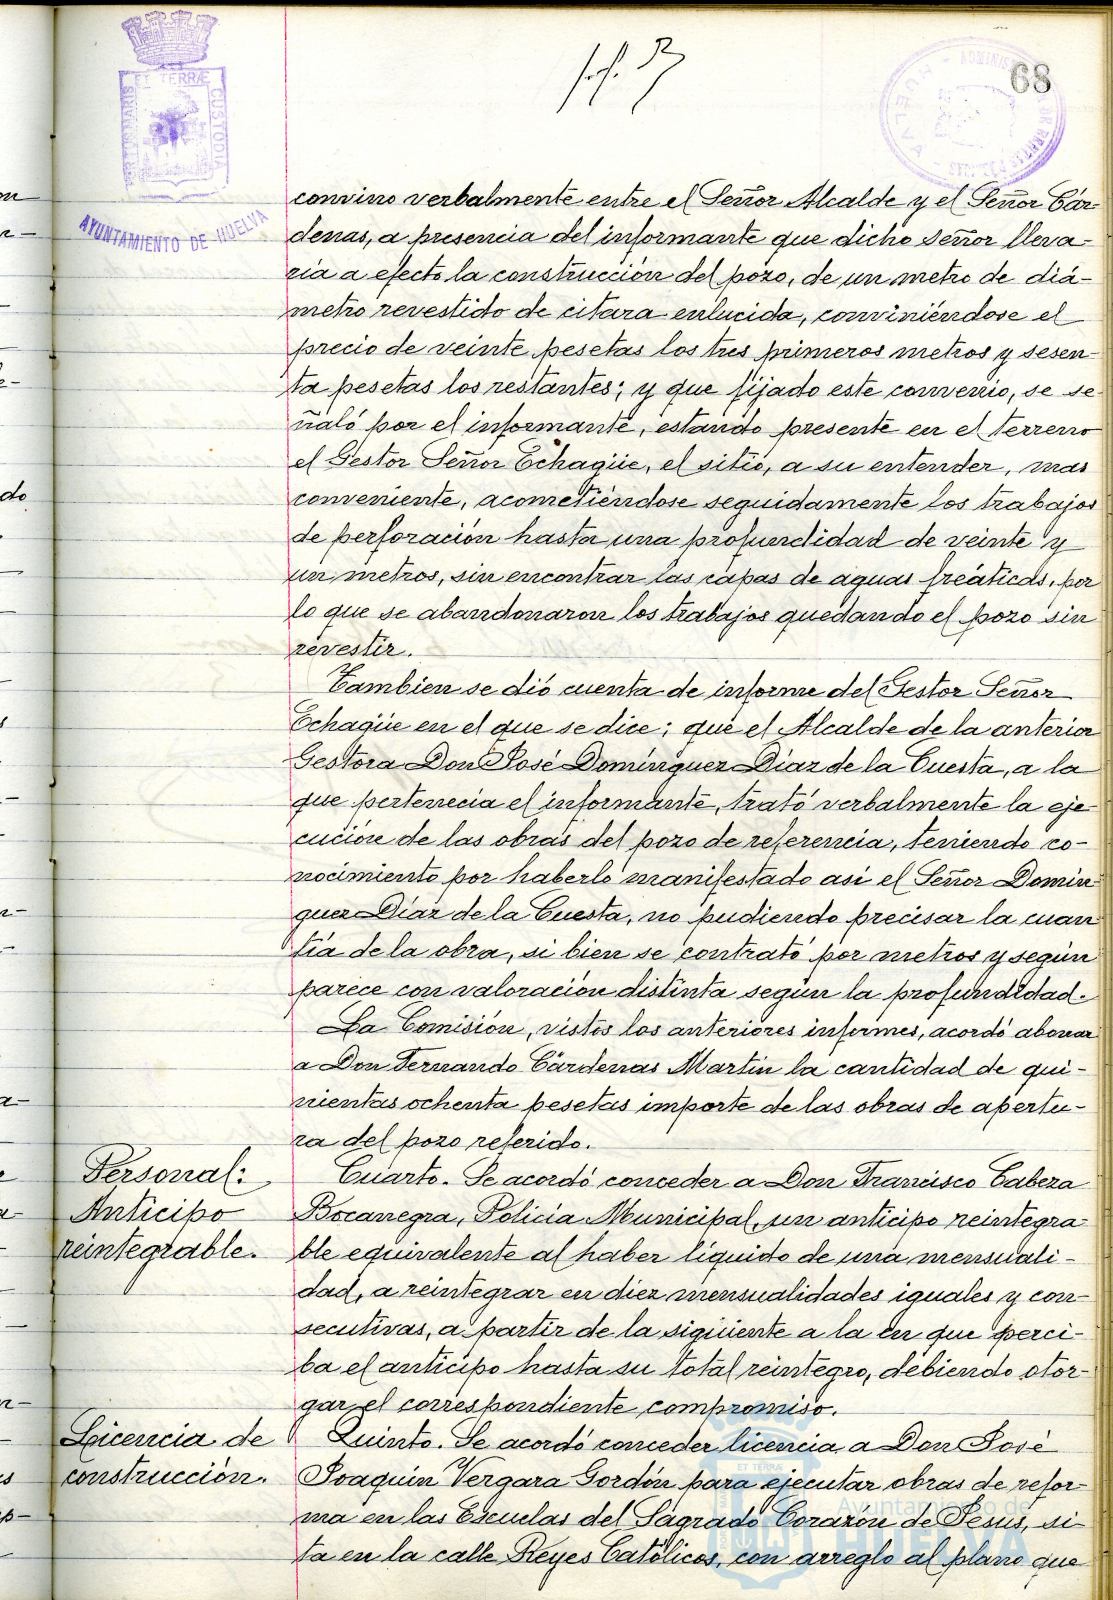 68
PORTUS MARIS ET TERRÆ CUSTODIA
AYUNTAMIENTO DE HUELVA
convino verbalmente entre el Señor Alcalde y el Señor Cár-
denas, a presencia del informante que dicho señor lleva-
ria a efecto la construcción del pozo, de un metro de diá-
metro revestido de citara enlucida, conviniéndose el
precio de veinte pesetas los tres primeros metros y sesen-
ta pesetas los restantes; y que fijado este convenio, se se-
ñaló por el informante, estando presente en el terreno
el Gestor Señor Echagüe, el sitio, a su entender, mas
conveniente, acometiéndose seguidamente los trabajos
de perforación hasta una profundidad de veinte y
un metros, sin encontrar las capas de aguas freáticas, por
lo que se abandonaron los trabajos quedando el pozo sin
revestir.
Tambien se dió cuenta de informe del Gestor Señor
Echagüe en el que se dice; que el Alcalde de la anterior
Gestora Don José Domínguez Díaz de la Cuesta, a la
que pertenecia el informante, trató verbalmente la eje-
cución de las obras del pozo de referencia, teniendo co-
nocimiento por haberlo manifestado así el Señor Domín-
guez Díaz de la Cuesta, no pudiendo precisar la cuan-
tía de la obra, si bien se contrató por metros y según
parece con valoración distinta según la profundidad.
La Comisión, vistos los anteriores informes, acordó abonar
a Don Fernando Cárdenas Martín la cantidad de qui-
nientas ochenta pesetas importe de las obras de apertu-
ra del pozo referido.
Personal:
Anticipo
reintegrable.
Cuarto. Se acordó conceder a Don Francisco Cabeza
Bocanegra, Policía Municipal, un anticipo reintegra-
ble equivalente al haber líquido de una mensuali-
dad, a reintegrar en diez mensualidades iguales y con-
secutivas, a partir de la siguiente a la en que perci-
ba el anticipo hasta su total reintegro, debiendo otor-
gar el correspondiente compromiso.
Licencia de
construcción.
Quinto. Se acordó conceder licencia a Don José
Joaquín Vergara Gordón para ejecutar obras de refor-
ma en las Escuelas del Sagrado Corazón de Jesús, si-
ta en la calle Reyes Católicos, con arreglo al plano que
Ayuntamiento de
HUELVA